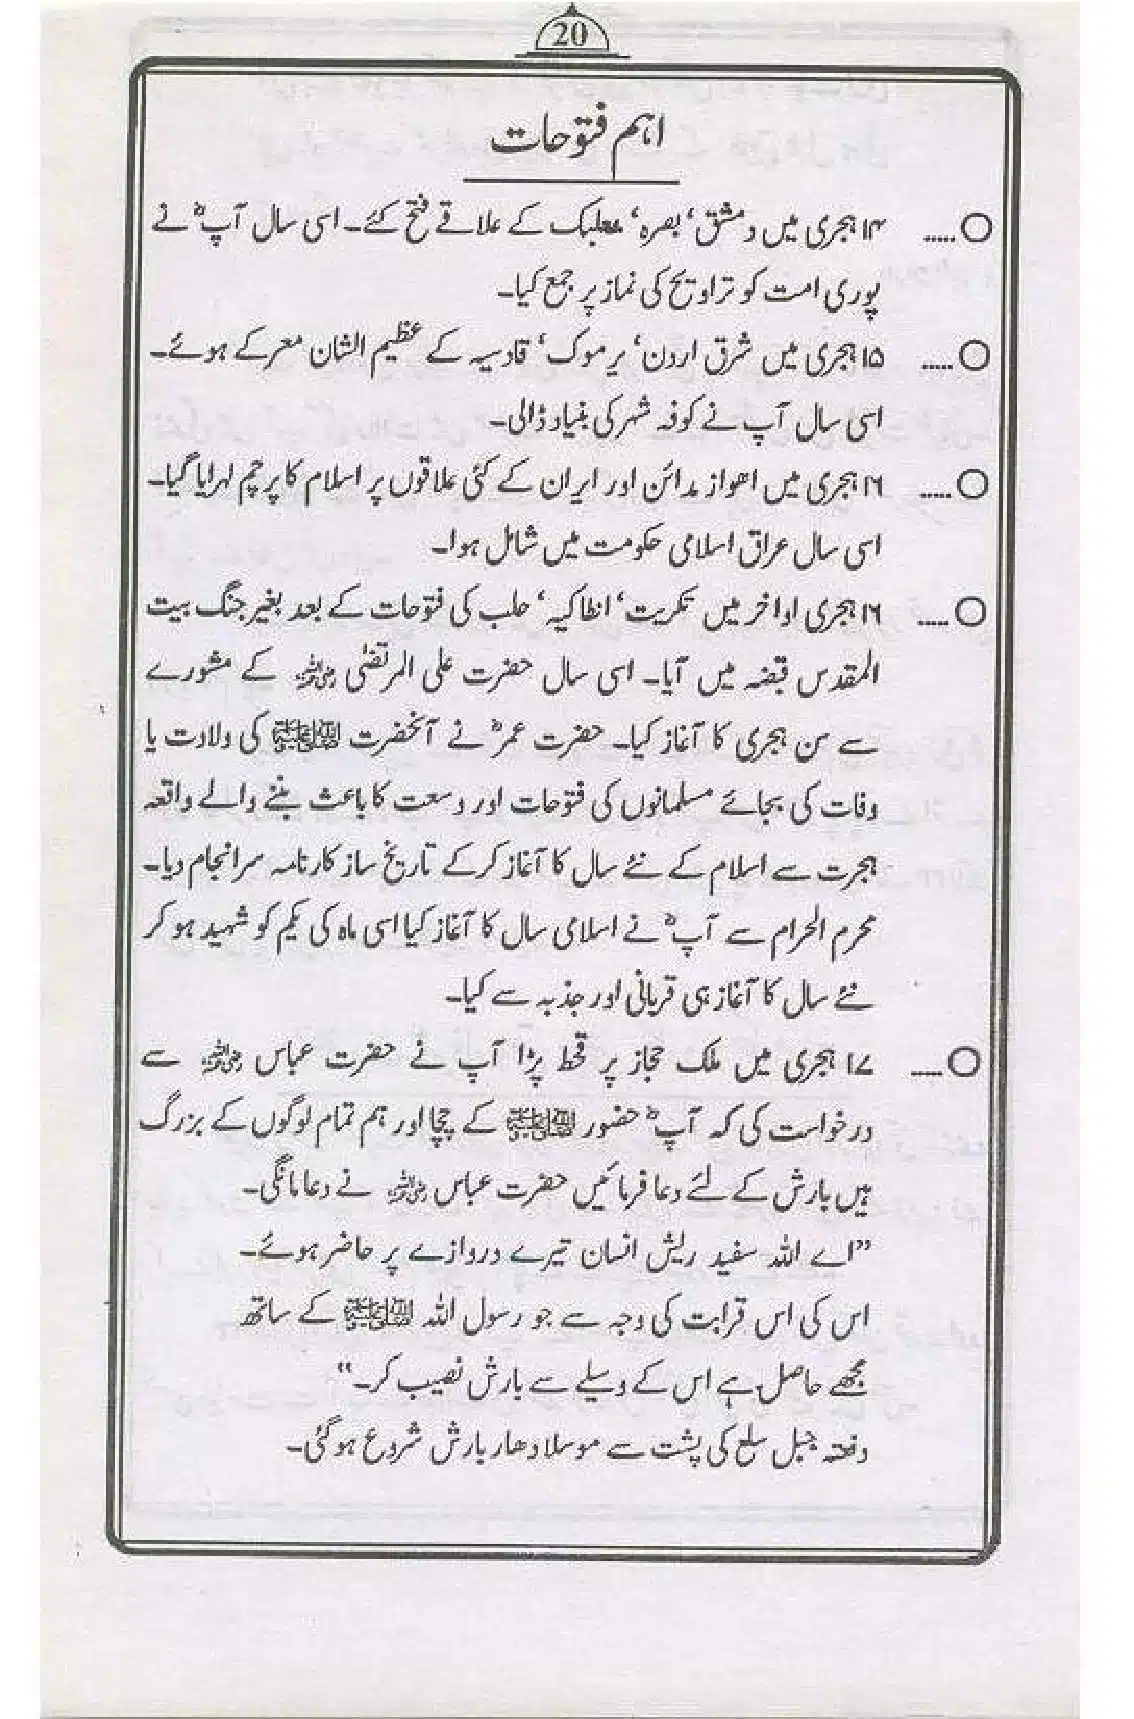 20
اہم فتوحات
○..... ۱۴ ہجری میں دمشق‘ بصرہ‘ بعلبک کے علاقے فتح کئے۔ اسی سال آپؓ نے
پوری امت کو تراویح کی نماز پر جمع کیا۔
○..... ۱۵ ہجری میں شرق اردن‘ یرموک‘ قادسیہ کے عظیم الشان معرکے ہوئے۔
اسی سال آپ نے کوفہ شہر کی بنیاد ڈالی۔
○..... ۱۶ ہجری میں اھواز مدائن اور ایران کے کئی علاقوں پر اسلام کا پرچم لہرایا گیا۔
اسی سال عراق اسلامی حکومت میں شامل ہوا۔
○..... ۱۶ ہجری اواخر میں تکریت‘ انطاکیہ‘ حلب کی فتوحات کے بعد بغیر جنگ بیت
المقدس قبضہ میں آیا۔ اسی سال حضرت علی المرتضیٰ رضی اللہ عنہ کے مشورے
سے سن ہجری کا آغاز کیا۔ حضرت عمرؓ نے آنحضرت ﷺ کی ولادت یا
وفات کی بجائے مسلمانوں کی فتوحات اور وسعت کا باعث بننے والے واقعہ
ہجرت سے اسلام کے نئے سال کا آغاز کر کے تاریخ ساز کارنامہ سرانجام دیا۔
محرم الحرام سے آپؓ نے اسلامی سال کا آغاز کیا اسی ماہ کی یکم کو شہید ہو کر
نئے سال کا آغاز ہی قربانی اور جذبہ سے کیا۔
○.... ۱۷ ہجری میں ملک حجاز پر قحط پڑا آپ نے حضرت عباس رضی اللہ عنہ سے
درخواست کی کہ آپؓ حضور ﷺ کے چچا اور ہم تمام لوگوں کے بزرگ
ہیں بارش کے لئے دعا فرمائیں حضرت عباس رضی اللہ عنہ نے دعا مانگی۔
”اے اللہ سفید ریش انسان تیرے دروازے پر حاضر ہوئے۔
اس کی اس قرابت کی وجہ سے جو رسول اللہ ﷺ کے ساتھ
مجھے حاصل ہے اس کے وسیلے سے بارش نصیب کر۔“
دفعتہ جبل سلع کی پشت سے موسلا دھار بارش شروع ہو گئی۔